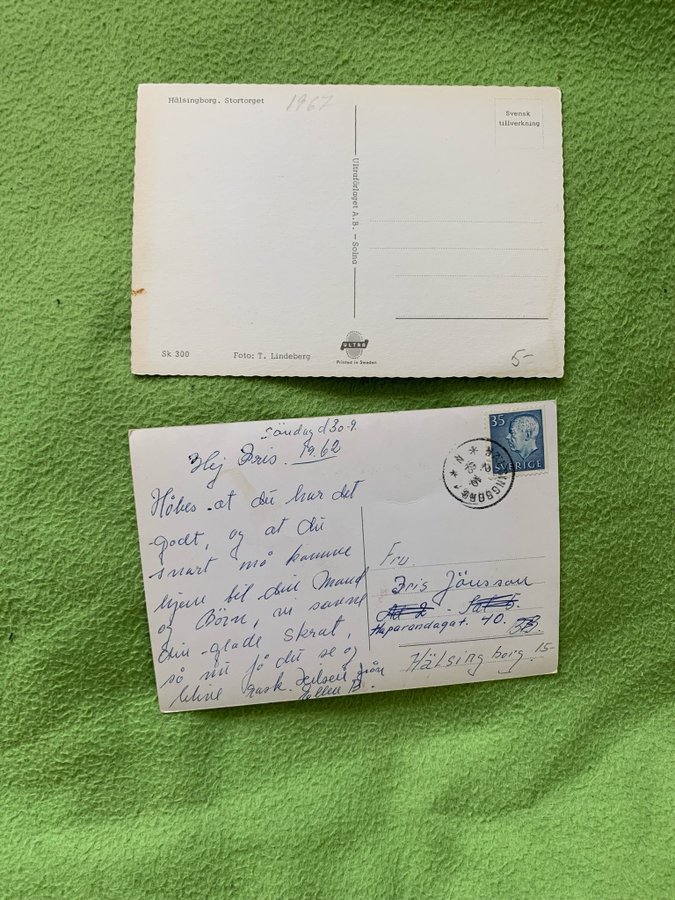 Hälsingborg. Stortorget
1967
Svensk
tillverkning
Ultraförlaget A.B. — Solna
Sk 300
Foto: T. Lindeberg
ULTRA
Printed in Sweden
5-
Söndag d 30-9.
1962
Hej Iris.
Håbes at du har det
godt, og at du
snart må komme
hjem til din Mand
og Börn, vi savne
din glade Skrat,
så nu få du se og
blive rask. Hilsen från
Hellen B.
35
SVERIGE
Fru.
Iris Jönsson
Haparandagat. 40.
Hälsingborg.
15-